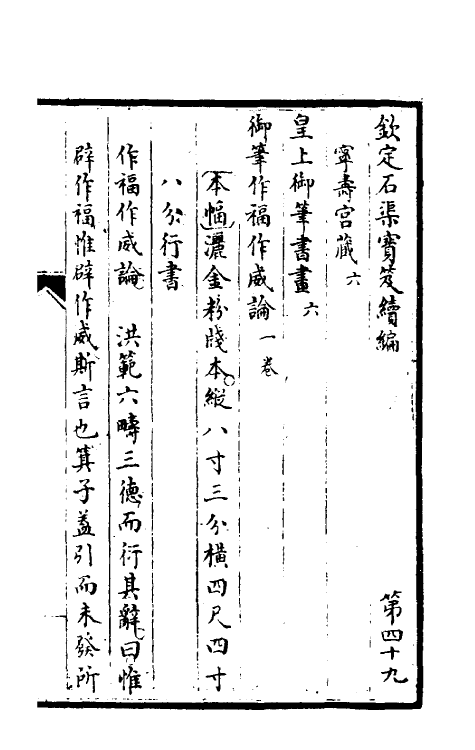 欽定石渠寳笈續編 第四十九
寧壽宫藏 六
皇上御筆書畫 六
御筆作福作威論 一卷
本幅灑金粉牋本縱八寸三分橫四尺四寸
八分行書
作福作威論 洪範六疇三德而衍其辭曰惟
辟作福惟辟作威斯言也箕子葢引而未發所